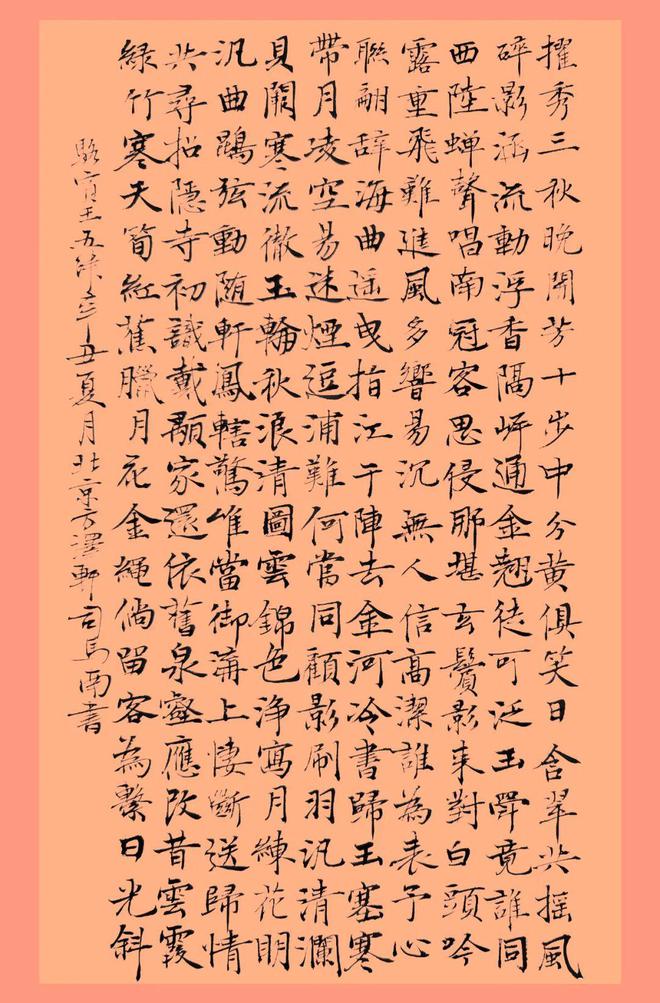 擢秀三秋晚開芳十步中分黃俱笑日含翠共搖風
碎影涵流動浮香隔岸通金翹徒可泛玉斝竟誰同
西陸蟬聲唱南冠客思侵那堪玄鬢影來對白頭吟
露重飛難進風多響易沉無人信高潔誰為表予心
聯翩辭海曲遥曳指江干陣去金河冷書歸玉塞寒
帶月凌空易迷煙逗浦難何當同顧影刷羽汎清瀾
貝闕寒流徹玉輪秋浪清圖雲錦色淨寫月練花明
汎曲鵾弦動随軒鳳轄驚唯當御溝上悽斷送歸情
共尋招隱寺初識戴顒家還依舊泉壑應改昔雲霞
綠竹寒天筍紅蕉臘月花金繩倘留客為繫日光斜
駱賓王五律辛丑夏月北京方澤軒司馬南書